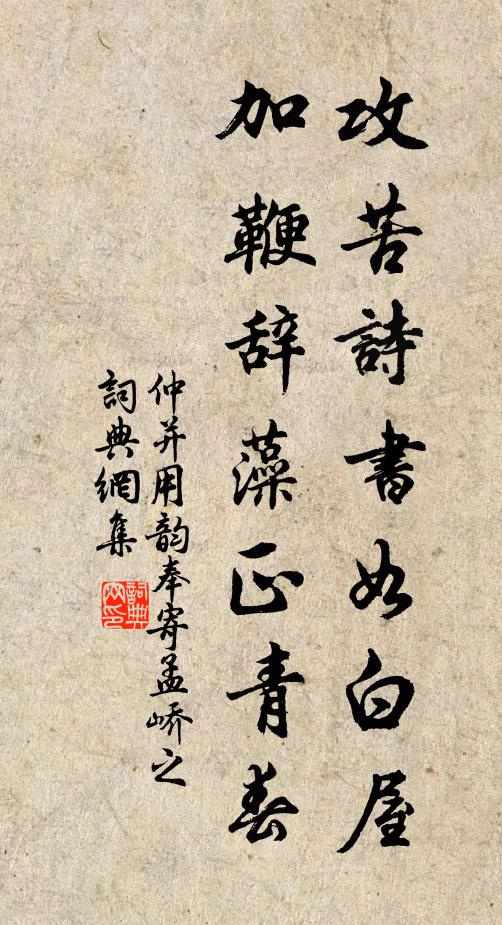 攻苦詩書如白屋
加鞭辞藻正青春
仲并用韵奉寄孟峤之
詞典網集
詞典网印